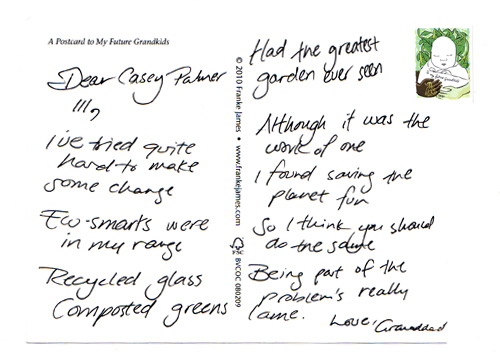 A Postcard to My Future Grandkids
Dear Casey Palmer
III,
I've tried quite
hard to make
some change
Eco-smarts were
in my range
Recycled glass
Composted greens
© 2010 Franke James • www.frankejames.com
BVCOC 080209
Had the greatest
garden ever seen
Although it was the
work of one
I found saving the
planet fun
So I think you should
do the same
Being part of the
problem's really
lame.
Love, Granddad